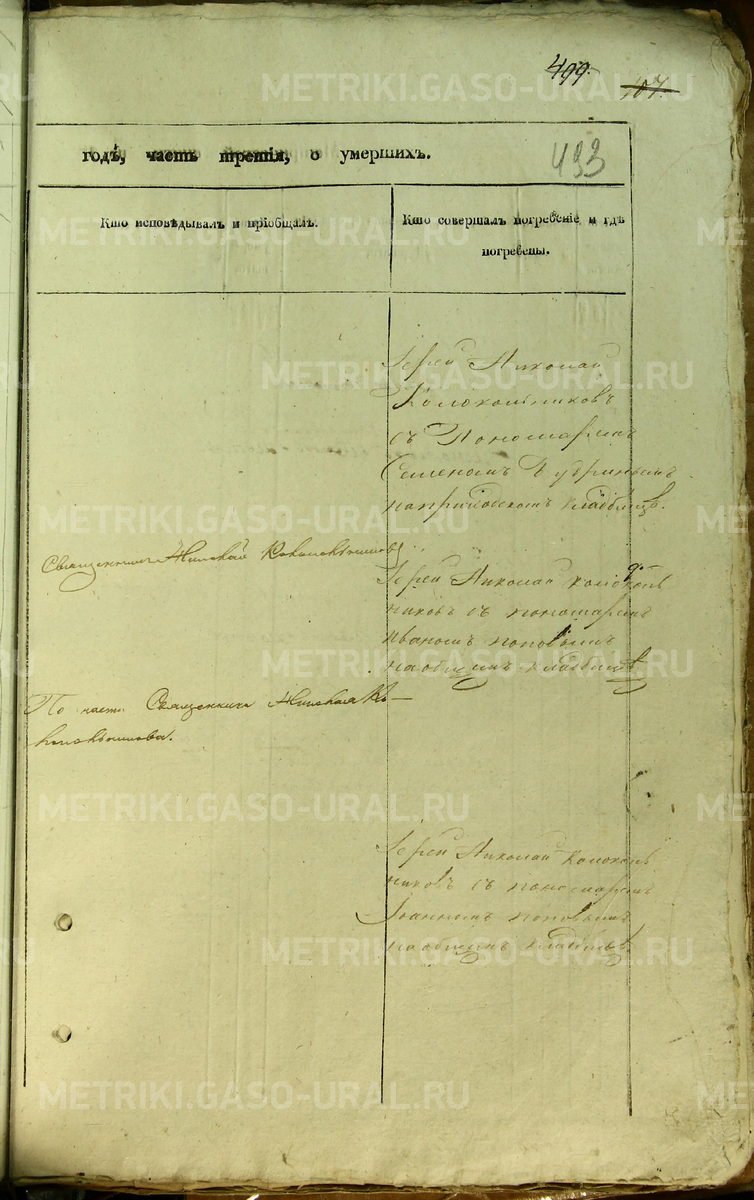 499.
107.
433
годъ, часть третія, о умершихъ.
Кто исповѣдывалъ и пріобщалъ.
Кто совершалъ погребеніе и гдѣ
погребены.
Іерей Николай
Колокольниковъ
съ Пономаремъ
Семеномъ
на приходскомъ кладбищѣ.
Священникъ Николай Колокольниковъ
Іерей Николай Колоколь
никовъ съ пономаремъ
Иваномъ поповымъ
на общемъ кладбищѣ
Священника Николая Ко—
локольникова.
Іерей Николай Колоколь
никовъ съ пономаремъ
Іоанномъ поповымъ
на общемъ кладбищѣ
METRIKI.GASO-URAL.RU